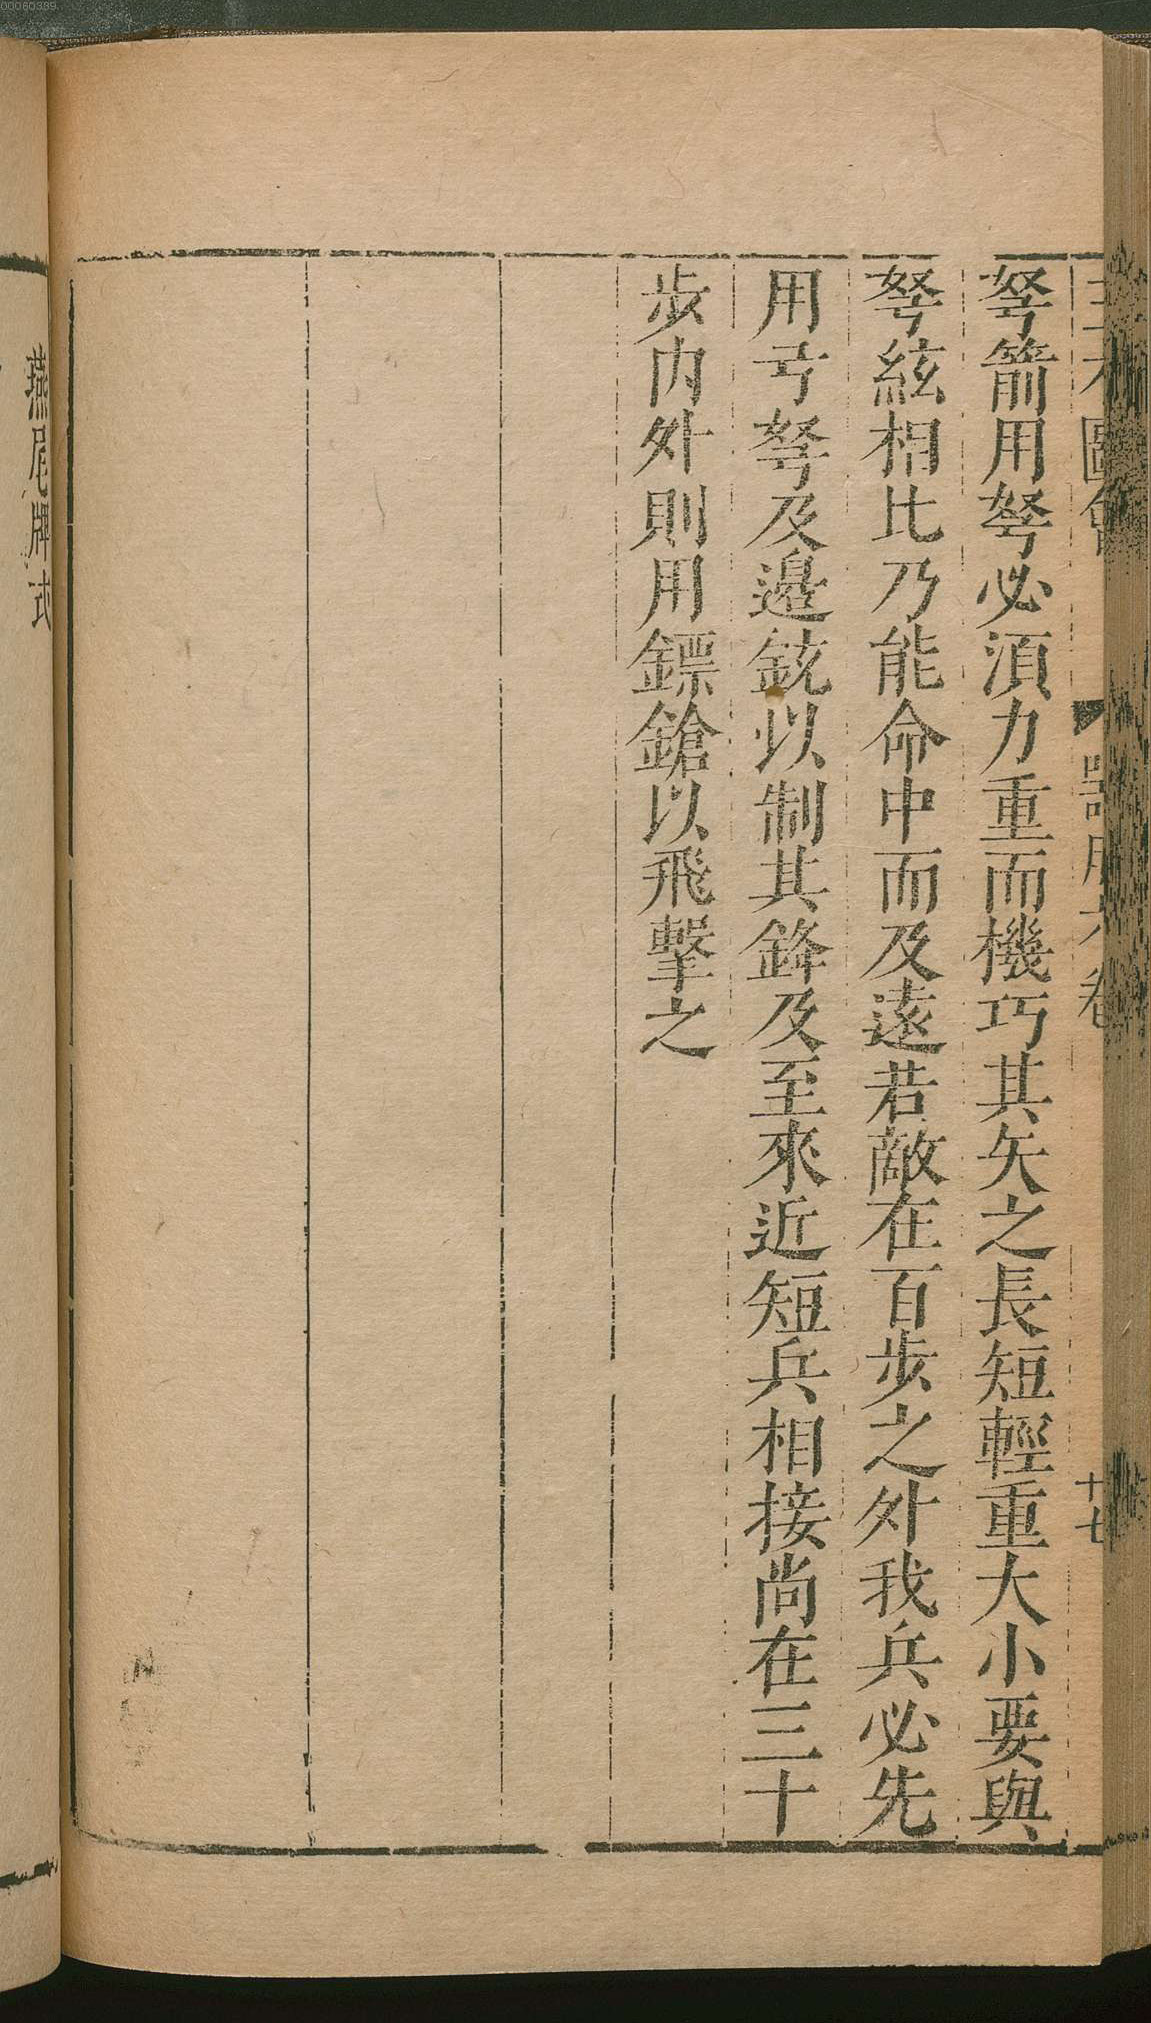 弩箭用弩必須力重而機巧其矢之長短輕重大小要與
弩絃相比乃能命中而及遠若敵在百步之外我兵必先
用弓弩及邉銃以制其鋒及至來近短兵相接尚在三十
步內外則用鏢鎗以飛擊之
圖會
卷
十七
燕尾牌式
00060389